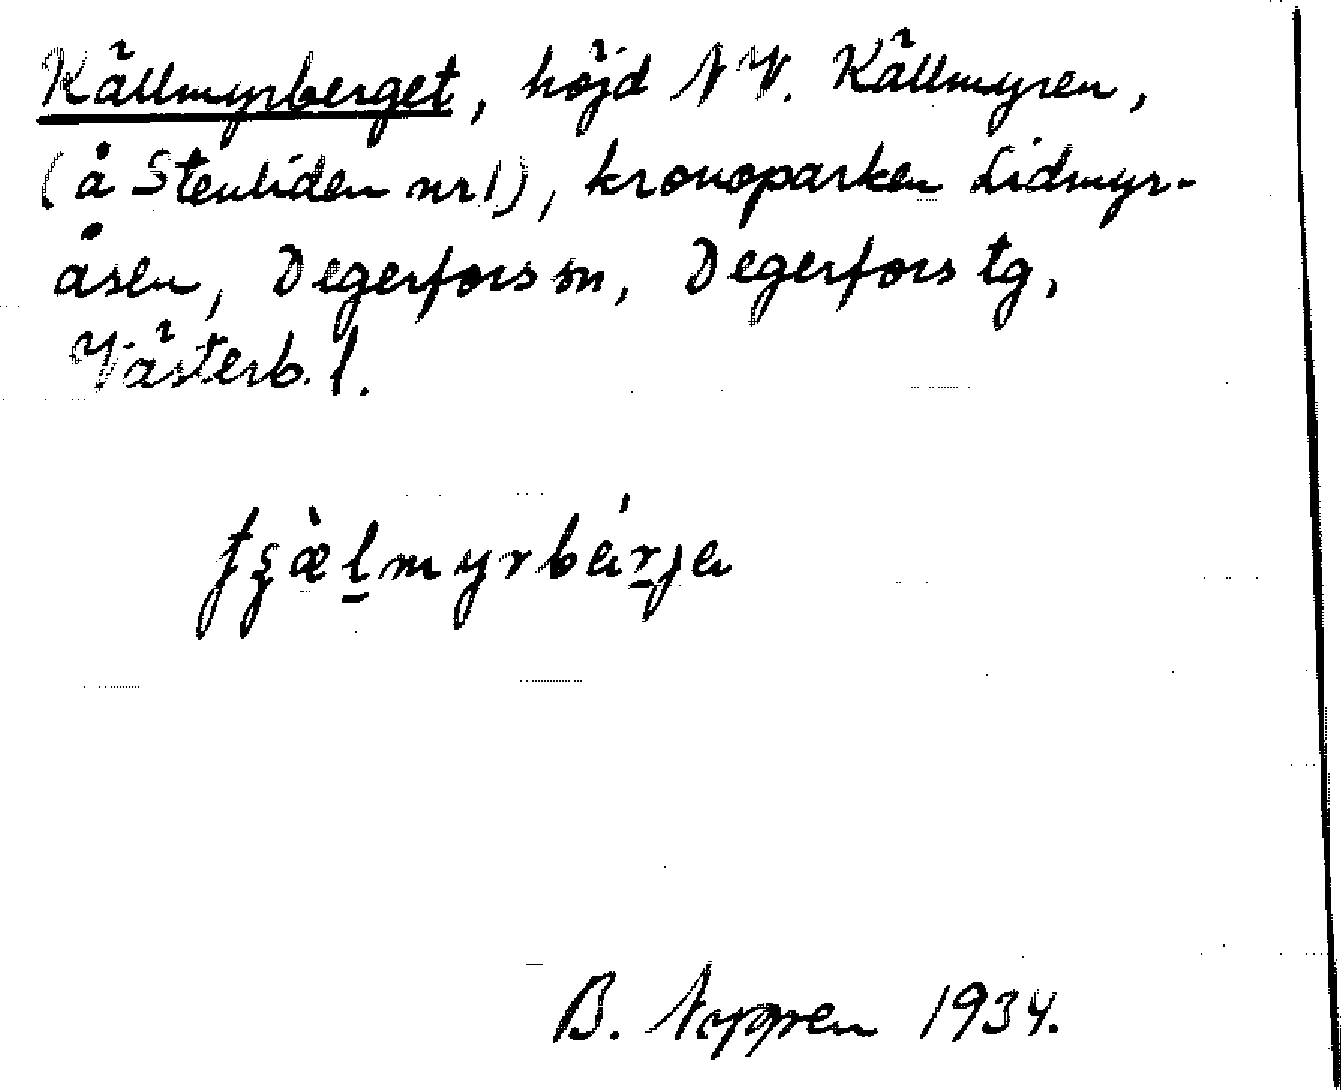 Källmyrberget, höjd NV. Källmyren,
(å Stenliden nr 1), kronoparken Lidmyr-
åsen, Degerfors sn, Degerfors tg,
Västerb. l.
B. 1934.